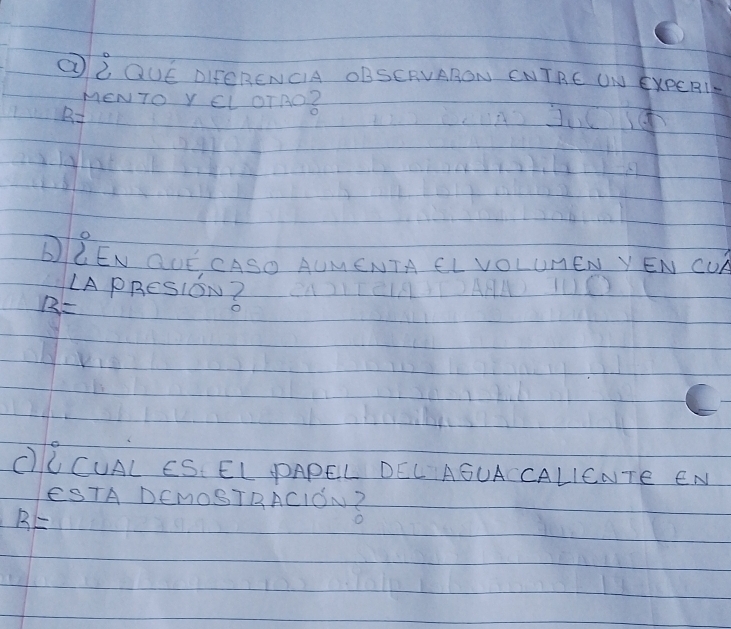 a) ¿QUÉ DIFERENCIA OBSERVARON ENTRE UN EXPERI-
MENTO Y EL OTRO?
R=
b) ¿EN QUÉ CASO AUMENTA EL VOLUMEN Y EN CUÁ
LA PRESIÓN?
R=
c) ¿CUAL ES EL PAPEL DEL AGUA CALIENTE EN
ESTA DEMOSTRACIÓN?
R=